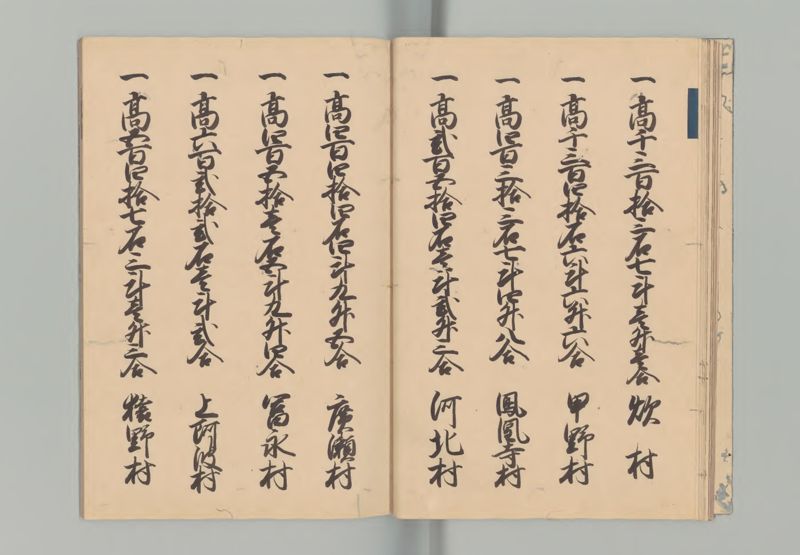 一 高千三百拾三石七斗壱升壱合 炊村
一 高千三百四拾石六斗六升六合 甲野村
一 高四百三拾三石七斗四升八合 鳳凰寺村
一 高弐百五拾四石壱斗弐升三合 河北村
一 高四百四拾四石四斗九升五合 廣瀬村
一 高四百五拾壱石五斗九升四合 冨永村
一 高六百弐拾弐石壱斗弐合 上阿波村
一 高五百四拾七石三斗壱升三合 猿野村